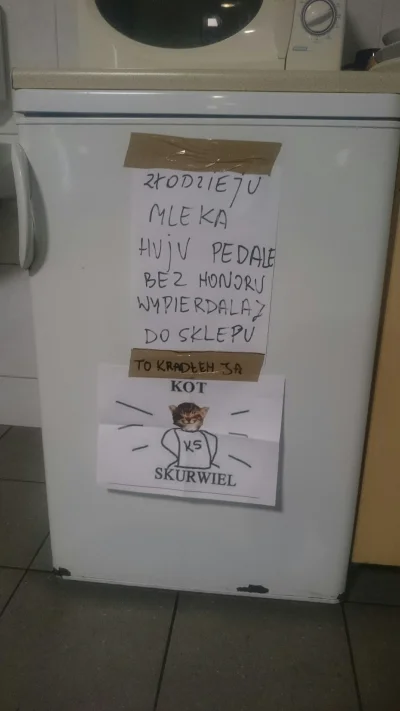 ZŁODZIEJU
MLEKA
HUJU PEDALE
BEZ HONORU
WYPIERDALAJ
DO SKLEPU
TO KRADŁEM JA
KOT
KS
SKURWIEL